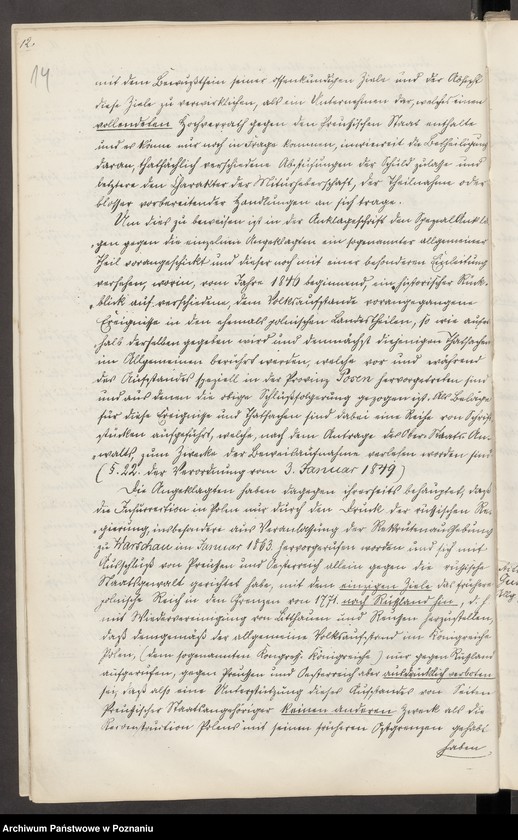 12.
14
mit dem Bewußtsein seiner offenkundigen Ziele und der Absicht
diese Ziele zu verwirklichen, als ein Unternehmen dar, welches einen
vollendeten Hochverrath gegen den Preußischen Staat enthalte
und es könne nur noch in Frage kommen, inwieweit die Betheiligung
daran, thatsächlich verschiedene Abstufungen der Schuld zulasse und
letztere den Charakter der Miturheberschaft, der Theilnahme oder
bloßer vorbereitender Handlungen an sich trage.
Um dies zu beweisen ist in der Anklageschrift den Spezial Ankla
gen gegen die einzelnen Angeklagten ein sogenannter allgemeiner
Theil vorangeschickt und dieser noch mit einer besonderen Einleitung
versehen, worin, vom Jahre 1846 beginnend, ein historischer Rück-
blick auf verschiedene, dem Volksaufstande vorangegangene
Ereignisse in den ehemals polnischen Landestheilen, so wie außer
halb derselben gegeben wird und demnächst diejenigen Thatsachen
im Allgemeinen berührt werden, welche vor und während
des Aufstandes speziell in der Provinz Posen hervorgetreten sind
und aus denen die obige Schlußfolgerung gezogen ist. Als Beläge
für diese Ereignisse und Thatsachen sind dabei eine Reihe von Schrift
stücken aufgeführt, welche, nach dem Antrage des Ober Staats An-
walts, zum Zwecke der Beweisaufnahme verlesen worden sind
(§. 22. der Verordnung vom 3. Januar 1849)
Die Angeklagten haben dagegen ihrerseits behauptet, daß
die Insurrection in Polen nur durch den Druck der russischen Re-
gierung, insbesondere aus Veranlassung der Rekrutenaushebung
zu Warschau im Januar 1863. hervorgerufen worden und sich mit
Ausschluß von Preußen und Oesterreich allein gegen die russische
Staatsgewalt gerichtet habe, mit dem einzigen Ziele das frühere
polnische Reich in den Grenzen von 1771. nach Rußland hin, d. h.
mit Wiedervereinigung von Litthauen und Reußen herzustellen,
daß demgemäß der allgemeine Volksaufstand im Königreiche
Polen, (dem sogenannten Kongreß-Königreiche) nur gegen Rußland
aufgerufen, gegen Preußen und Oesterreich aber ausdrücklich verboten
sei, daß also eine Unterstützung dieses Aufstandes von Seiten
Preußischer Staatsangehöriger keinen anderen Zweck als die
Reconstruction Polens mit seinen früheren Ostgrenzen gehabt
haben
Archiwum Państwowe w Poznaniu